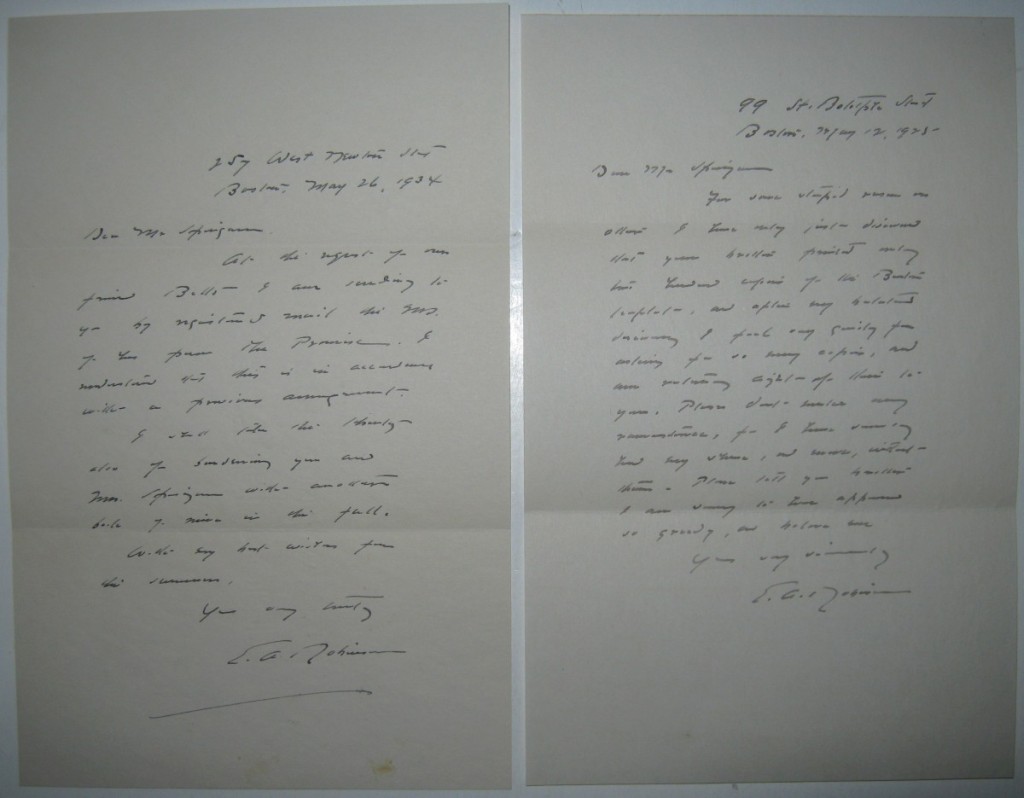 257 West Newton Street
Boston, May 26, 1934
Dear Mr. Spingarn
At the request of my
friend Betts I am sending to
you by registered mail the MS.
of the poem The Prodigal. I
understand that this is in accordance
with a previous arrangement.
I shall take the liberty
also of burdening you and
Mrs. Spingarn with another
book of mine in the fall.
With my best wishes for
the summer,
Yours very truly
E. A. Robinson
99 St. Botolph Street
Boston, May 12, 1923
Dear Mr. Spingarn
For some stupid reason or
other I have only just discovered
that your brother printed only
two hundred copies of the
leaflet, and after my belated
discovery I feel very guilty for
asking for so many copies, and
am returning eight of them to
you. Please don't make any
remonstrance, for I have
had my share, and more, without
them. Please tell your brother
I am sorry to have appeared
so greedy, and believe me
Yours very sincerely
E. A. Robinson